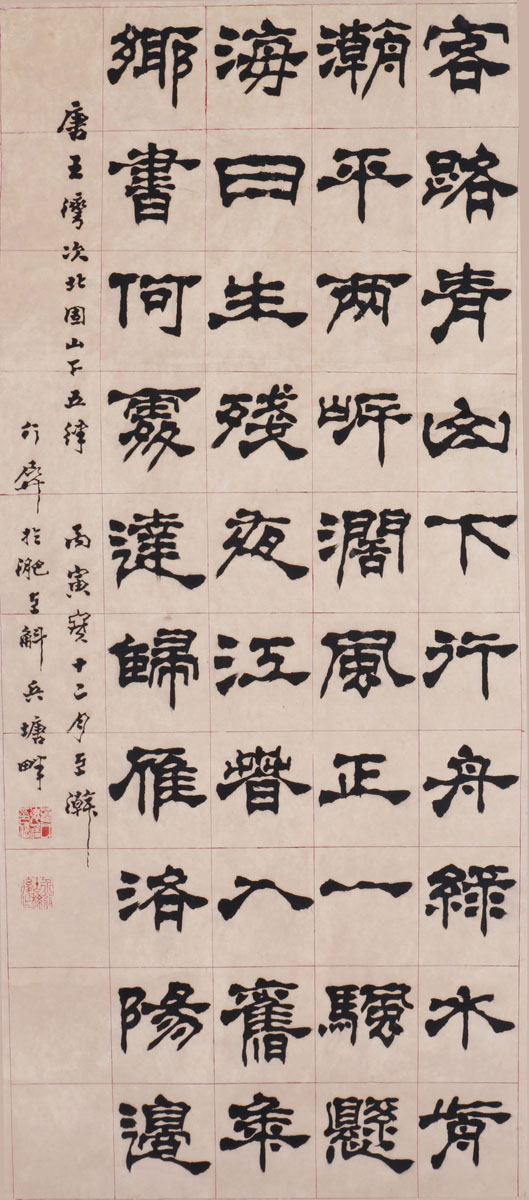 客路青山下行舟綠水前
潮平兩岸闊風正一騆懸
海日生殘夜江春入舊年
鄉書何處達歸雁洛陽邊
唐王灣次北固山下五律 丙寅
於淝 斛兵塘畔